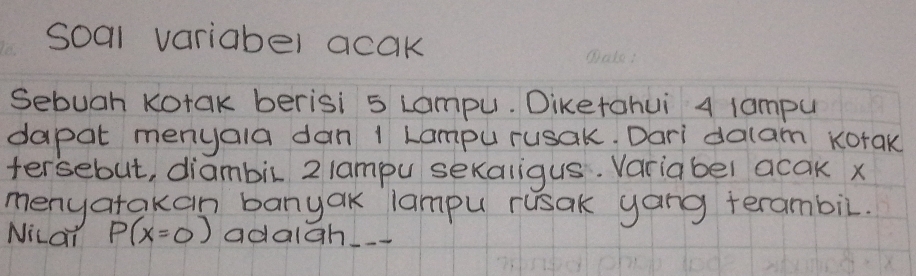 Soal variabel acak
Date:
Sebuah kotak berisi 5 Lampu. Diketahui 4 lampu
dapat menyala dan 1 Lampu rusak. Dari dalam kotak
tersebut, diambil 2 lampu sekaligus. Variabel acak x
menyatakan banyak lampu rusak yang terambil.
Nilai P(x=0) adalah ---